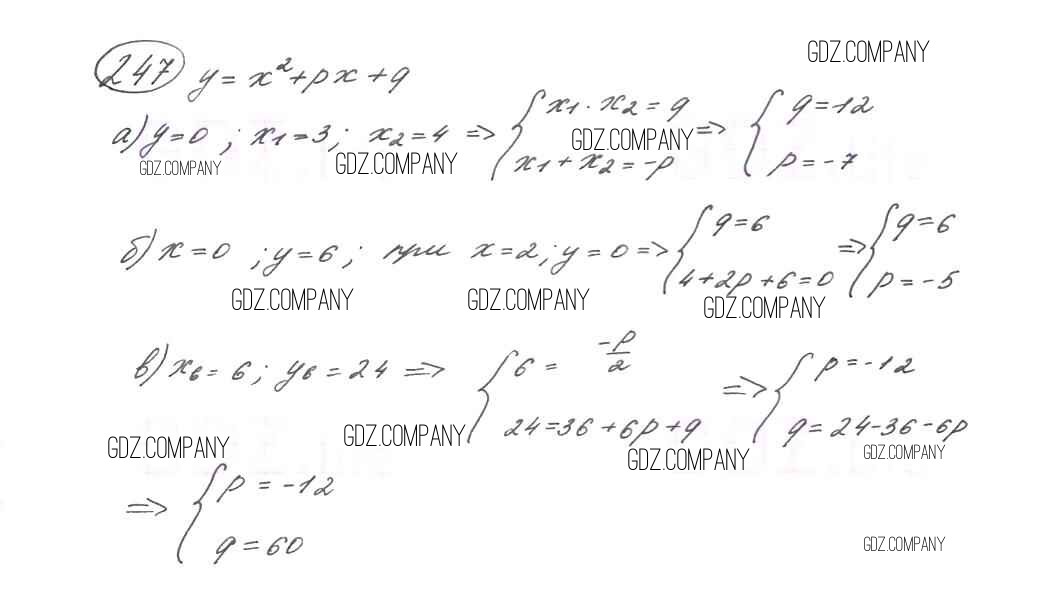 GDZ.COMPANY
247 y = x² + px + q
а) y=0 ; x1=3; x2=4 => { x1 · x2 = q => { q=12
GDZ.COMPANY GDZ.COMPANY GDZ.COMPANY
x1 + x2 = -p p = -7
б) x=0 ; y=6 ; при x=2; y=0 => { q=6 => { q=6
4+2p+6=0 p = -5
GDZ.COMPANY GDZ.COMPANY GDZ.COMPANY
в) xв = 6; yв = 24 => { 6 = -p/2 => { p=-12
24=36+6p+q q=24-36-6p
GDZ.COMPANY GDZ.COMPANY GDZ.COMPANY GDZ.COMPANY
=> { p = -12
q = 60
GDZ.COMPANY